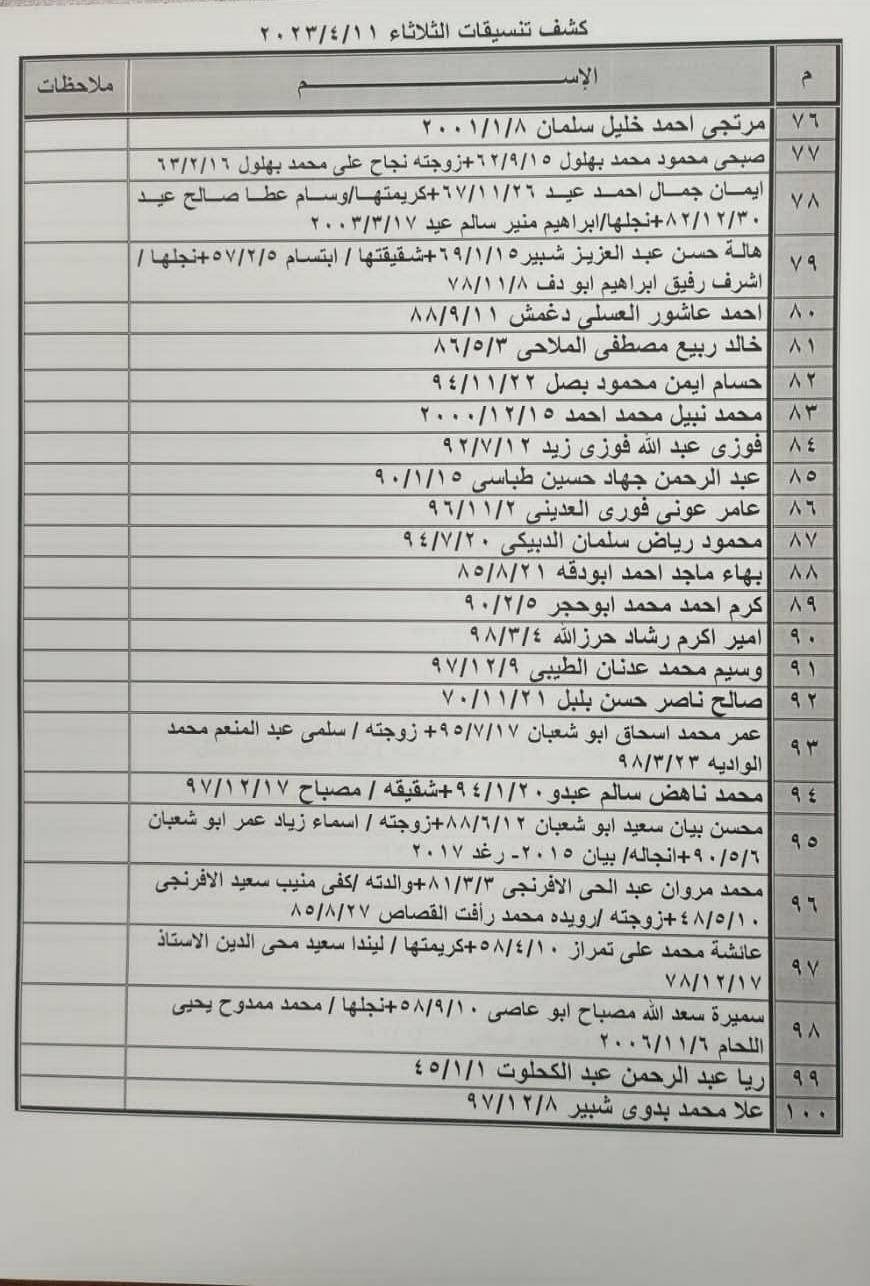 كشف تنسيقات الثلاثاء ٢٠٢٣/٤/١١
م الإســـــم ملاحظات
٧٦ مرتجى احمد خليل سلمان ٢٠٠١/١/٨
٧٧ صبحى محمود محمد بهلول ٦٢/٩/١٥+زوجته نجاح على محمد بهلول ٦٣/٢/١٦
٧٨ ايمــان جمــال احمــد عيــد ٦٧/١١/٢٦+كريمتهــا/وسـام عطـا صـالح عيـد
٨٢/١٢/٣٠+نجلها/ابراهيم منير سالم عيد ٢٠٠٣/٣/١٧
٧٩ هالة حسن عبد العزيز شبير٦٩/١/١٥+شقيقتها / ابتسام ٥٧/٢/٥+نجلها /
اشرف رفيق ابراهيم ابو دف ٧٨/١١/٨
٨٠ احمد عاشور العسلى دغمش ٨٨/٩/١١
٨١ خالد ربيع مصطفى الملاحى ٨٦/٥/٣
٨٢ حسام ايمن محمود بصل ٩٤/١١/٢٢
٨٣ محمد نبيل محمد احمد ٢٠٠٠/١٢/١٥
٨٤ فوزى عبد الله فوزى زيد ٩٢/٧/١٢
٨٥ عبد الرحمن جهاد حسين طباسى ٩٠/١/١٥
٨٦ عامر عونى فورى العدينى ٩٦/١١/٢
٨٧ محمود رياض سلمان الدبيكى ٩٤/٧/٢٠
٨٨ بهاء ماجد احمد ابودقه ٨٥/٨/٢١
٨٩ كرم احمد محمد ابوحجر ٩٠/٢/٥
٩٠ امير اكرم رشاد حرزالله ٩٨/٣/٤
٩١ وسيم محمد عدنان الطيبى ٩٧/١٢/٩
٩٢ صالح ناصر حسن بلبل ٧٠/١١/٢١
٩٣ عمر محمد اسحاق ابو شعبان ٩٥/٧/١٧+ زوجته / سلمى عبد المنعم محمد
الواديه ٩٨/٣/٢٣
٩٤ محمد ناهض سالم عبدو٩٤/١/٢٠+شقيقه / مصباح ٩٧/١٢/١٧
٩٥ محسن بيان سعيد ابو شعبان ٨٨/٦/١٢+زوجته / اسماء زياد عمر ابو شعبان
٩٠/٥/٦+انجاله/ بيان ٢٠١٥- رغد ٢٠١٧
٩٦ محمد مروان عبد الحى الافرنجى ٨١/٣/٣+والدته /كفى منيب سعيد الافرنجى
٤٨/٥/١٠+زوجته /رويده محمد رأفت القصاص ٨٥/٨/٢٧
٩٧ عائشة محمد على تمراز ٥٨/٤/١٠+كريمتها / ليندا سعيد محى الدين الاستاذ
٧٨/١٢/١٧
٩٨ سميرة سعد الله مصباح ابو عاصى ٥٨/٩/١٠+نجلها / محمد ممدوح يحيى
اللحام ٢٠٠٦/١١/٦
٩٩ ريا عبد الرحمن عبد الكحلوت ٤٥/١/١
١٠٠ علا محمد بدوى شبير ٩٧/١٢/٨